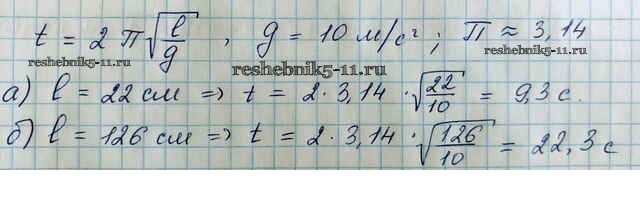 t = 2π√(l/g) , g = 10 м/с² ; π ≈ 3,14
reshebnik5-11.ru
reshebnik5-11.ru
reshebnik5-11.ru
а) l = 22 см => t = 2·3,14 · √(22/10) = 9,3 с.
б) l = 126 см => t = 2·3,14 · √(126/10) = 22,3 с